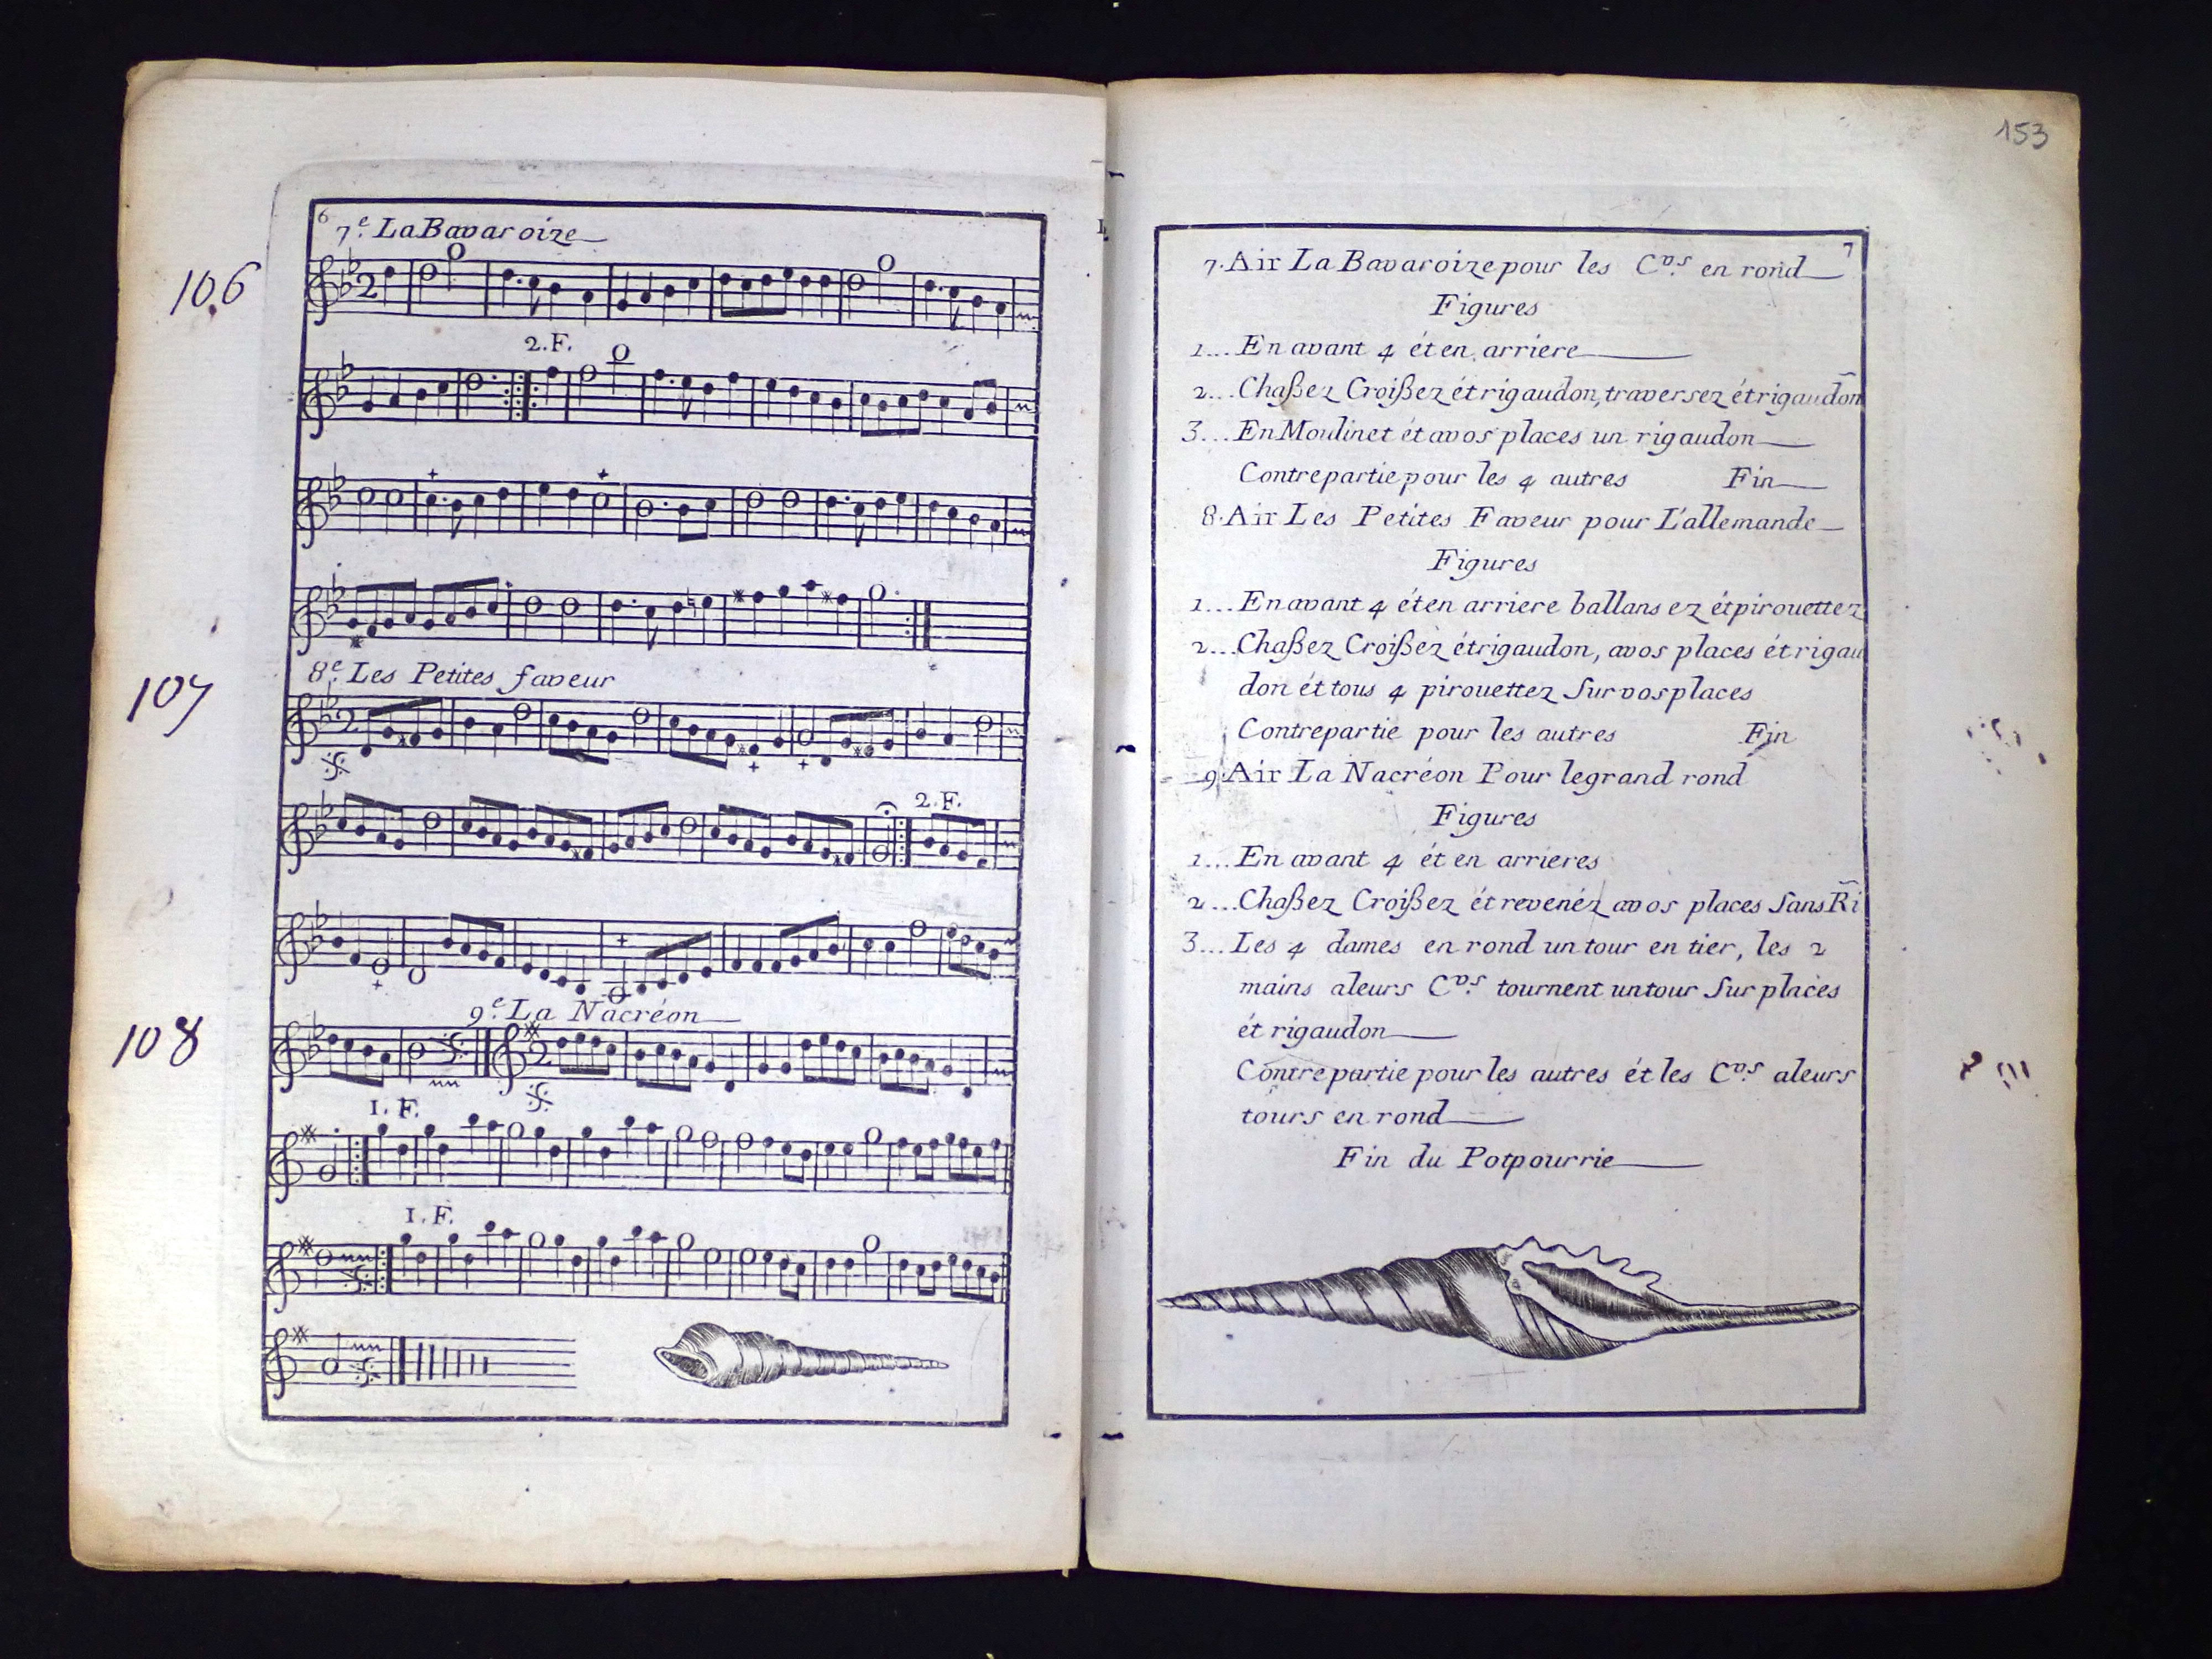 6
7.e La Bavaroize
106
2
2.F.
8.e Les Petites faveur
107
2
2.F.
9.e La Nacréon
108
2
1.F.
1.F.
153
7
7. Air La Bavaroize pour les C.vs en rond
Figures
1... En avant 4 ét en arriere
2... Chaßez Croißez ét rigaudon, traversez ét rigaudon
3... En Moulinet ét avos places un rigaudon
Contrepartie pour les 4 autres Fin
8. Air Les Petites Faveur pour L'allemande
Figures
1... En avant 4 ét en arriere ballansez ét pirouettez
2... Chaßez Croißez ét rigaudon, avos places ét rigau
don ét tous 4 pirouettez Sur vos places
Contrepartie pour les autres Fin
9. Air La Nacréon Pour le grand rond
Figures
1... En avant 4 ét en arrieres
2... Chaßez Croißez ét revenéz avos places Sans Ri
3... Les 4 dames en rond un tour en tier, les 2
mains aleurs C.vs tournent un tour Sur places
ét rigaudon
Contrepartie pour les autres ét les C.vs aleurs
tours en rond
Fin du Potpourrie